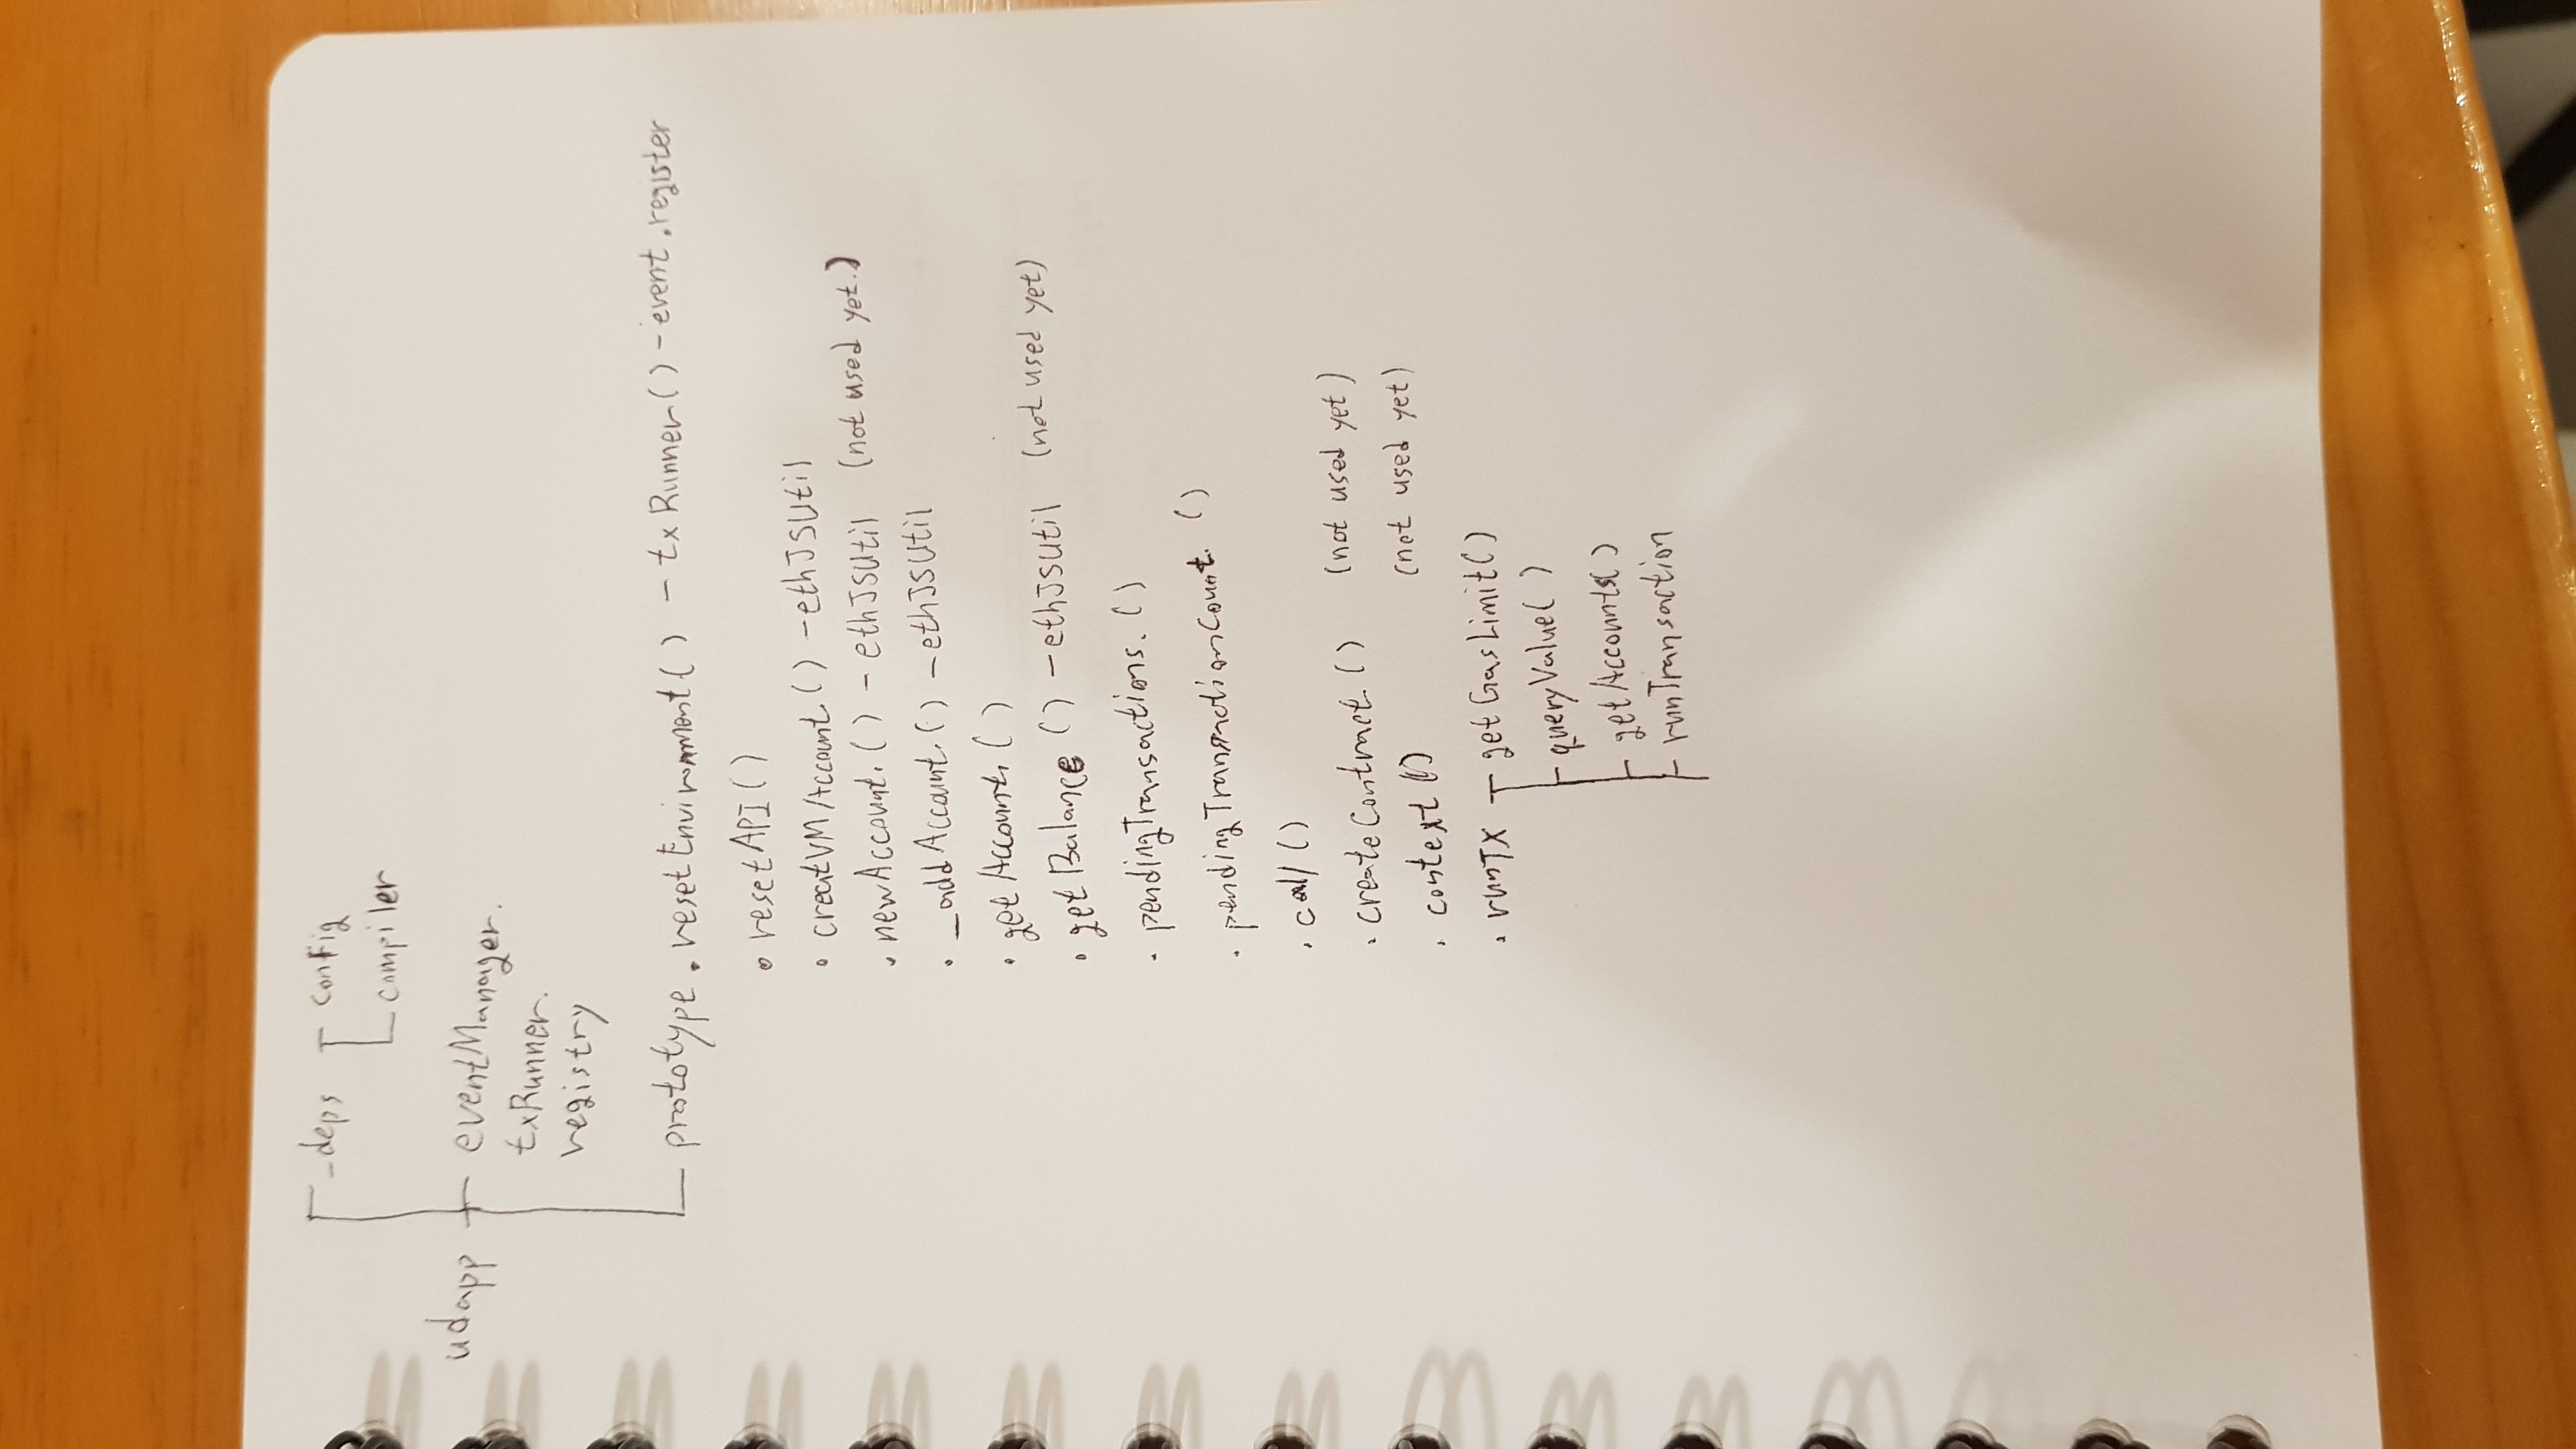 _deps config
compiler
udapp eventManager.
txRunner.
registry
prototype.resetEnvironment() - txRunner() - event.register
• resetAPI()
• creatVMAccount.() - ethJSUtil
• newAccount.() - ethJSUtil (not used yet.)
• _addAccount.() - ethJSUtil
• getAccount.()
• getBalance() - ethJSUtil (not used yet)
• pendingTransactions.()
• pendingTransactionCount.()
• call()
• createContract.() (not used yet)
• context() (not used yet)
• runTX getGasLimit()
queryValue()
getAccounts()
runTransaction